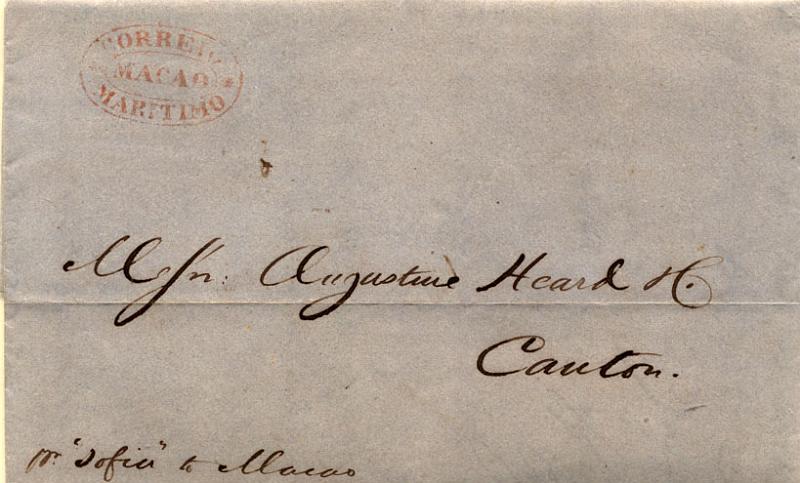 CORREIO
MACAO
MARITIMO
Messrs: Augustine Heard &
Canton.
pr. "Sofia" to Macao